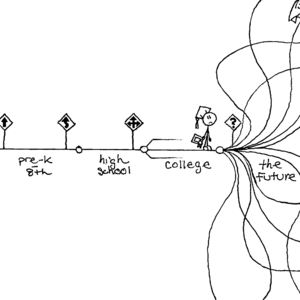 ?
pre-k
8th
high
school
college
the
future